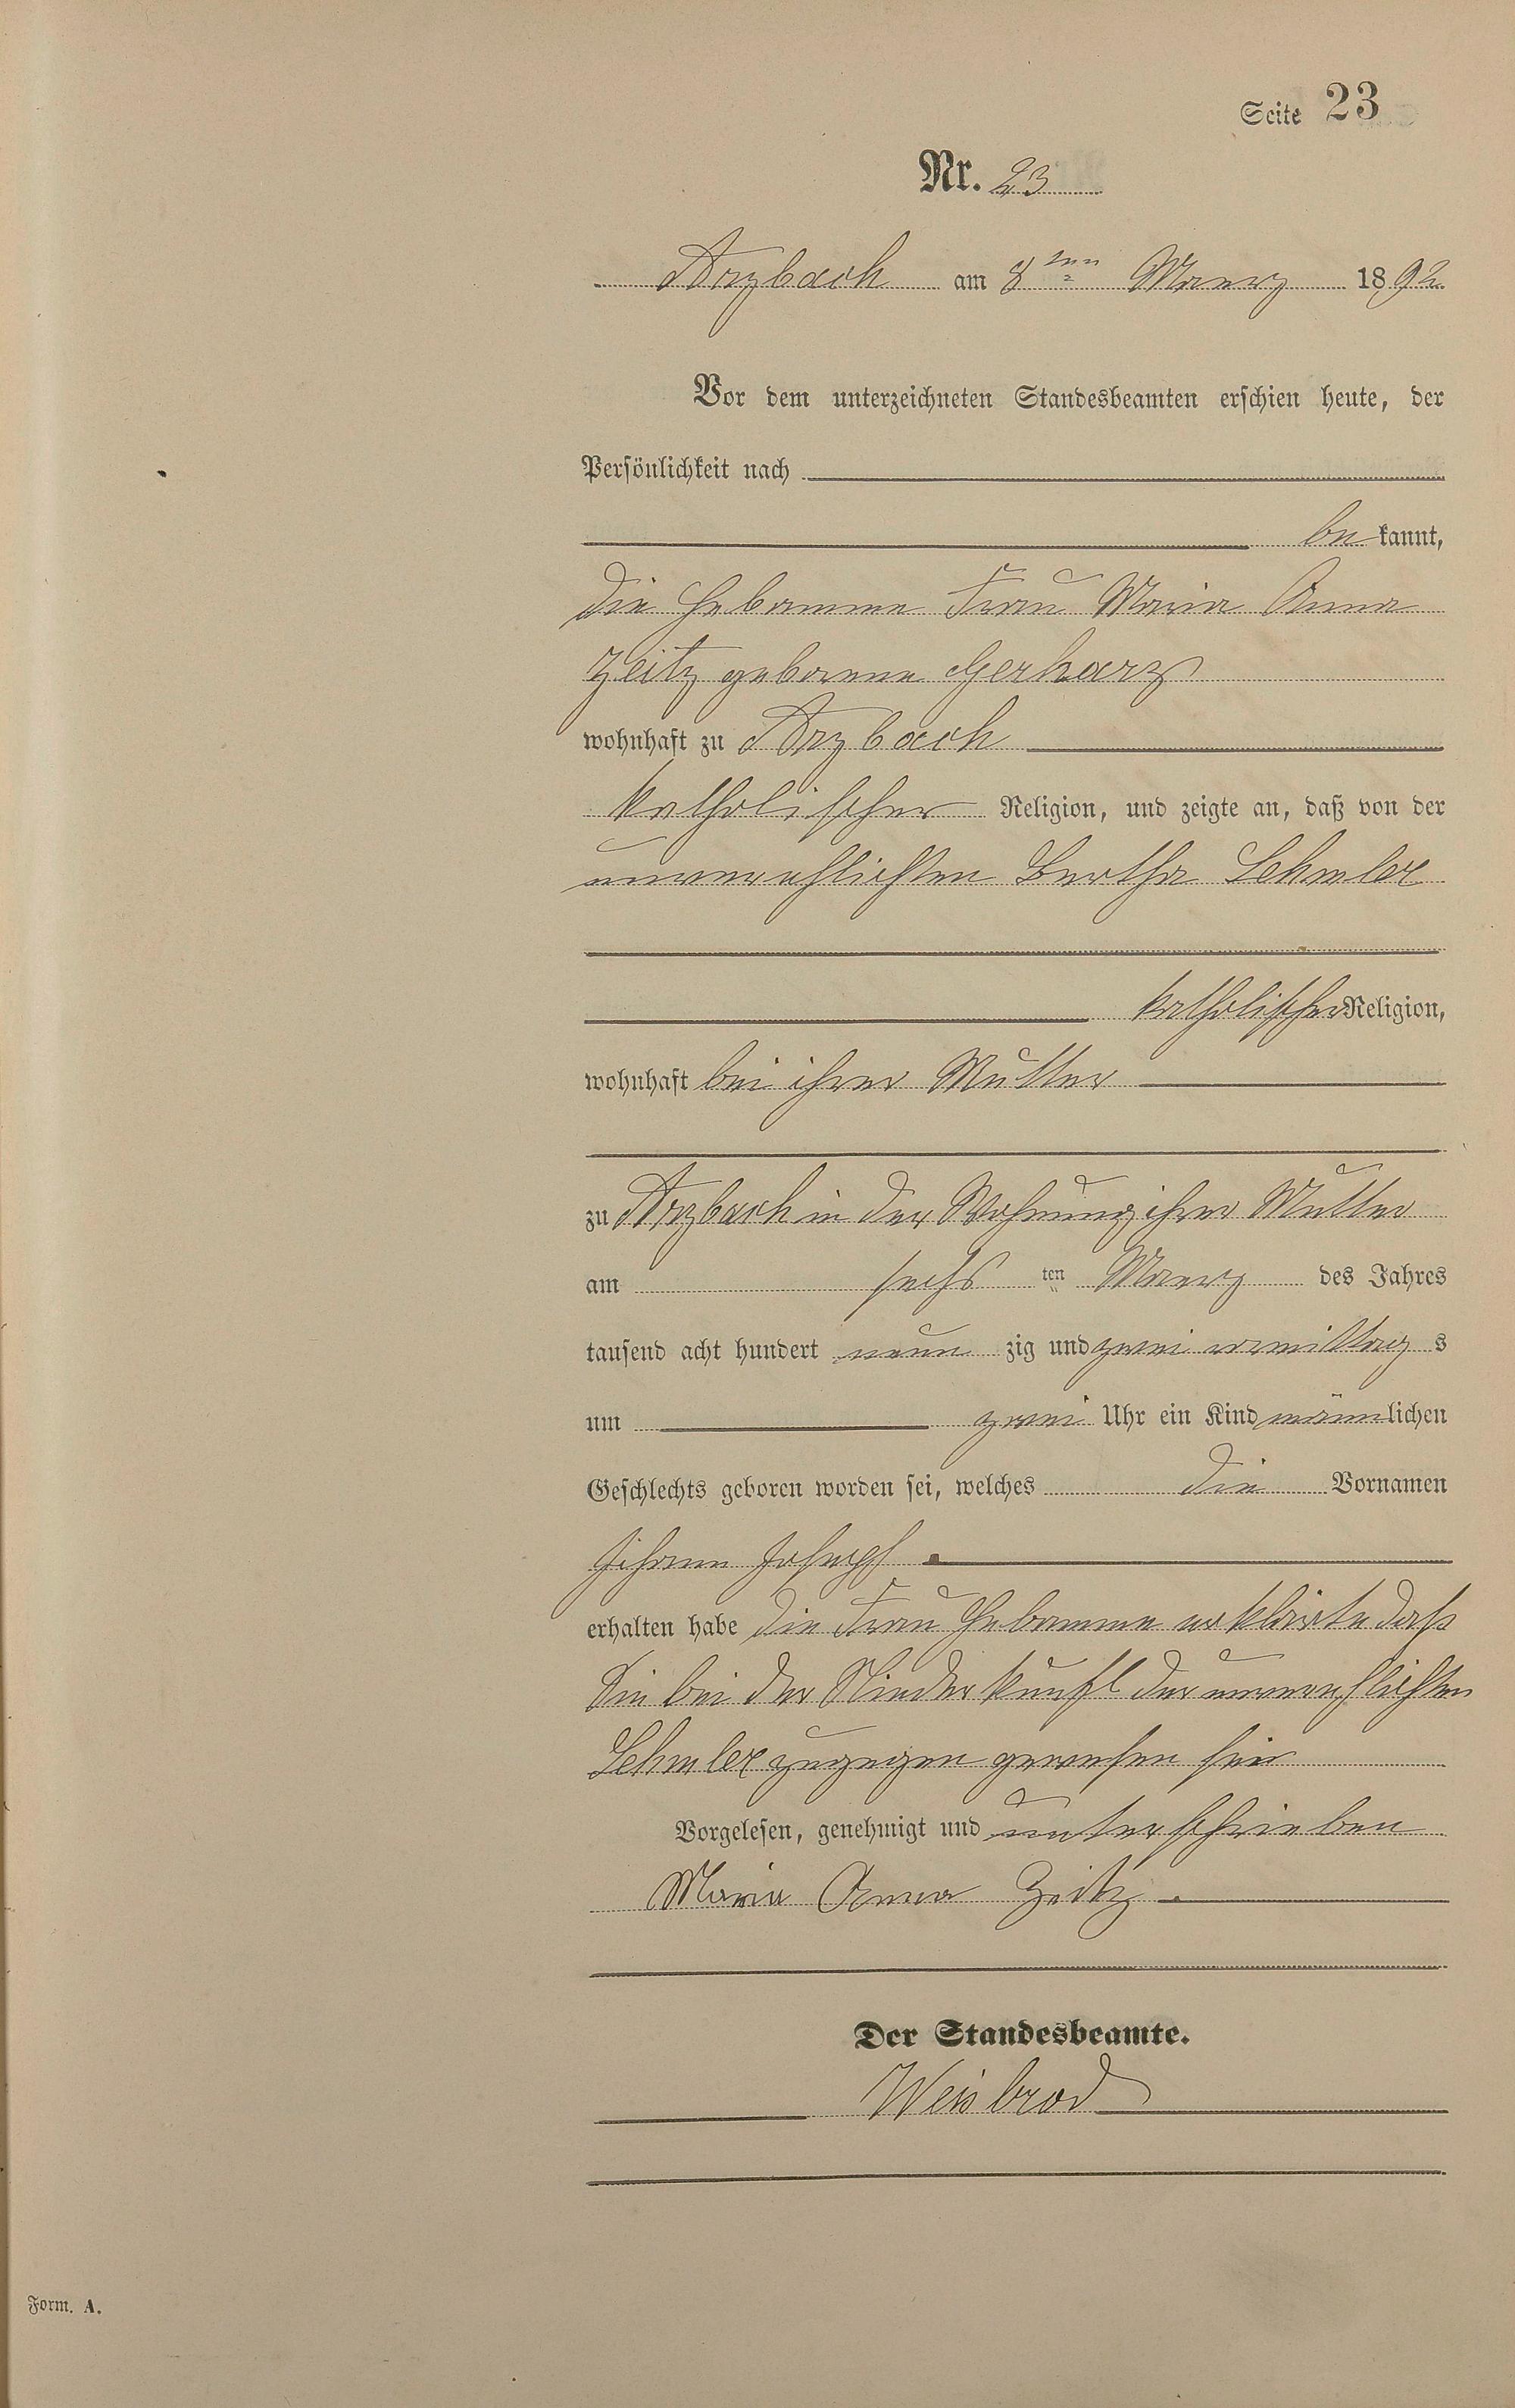 Seite 23
Nr. 23
Arzbach am 8ten Maerz 1892
Vor dem unterzeichneten Standesbeamten erschien heute, der
Persönlichkeit nach
bekannt,
die Hebamme Frau Maria Anna
Zeitz geborene Gerharz
wohnhaft zu Arzbach
katholischer Religion, und zeigte an, daß von der
unverehlichten Bertha Lehmler
katholischer Religion,
wohnhaft bei ihrer Mutter
zu Arzbach in der Wohnung ihrer Mutter
am sechsten Maerz des Jahres
tausend acht hundert neunzig und zwei vormittags
um zwei Uhr ein Kind männlichen
Geschlechts geboren worden sei, welches die Vornamen
Johann Joseph
erhalten habe die Frau Hebamme erklärte daß
Sie bei der Niederkunft der unverehlichten
Lehmler zugegen gewesen sei
Vorgelesen, genehmigt und unterschrieben
Maria Anna Zeitz.
Der Standesbeamte.
Weisbrod
Form. A.